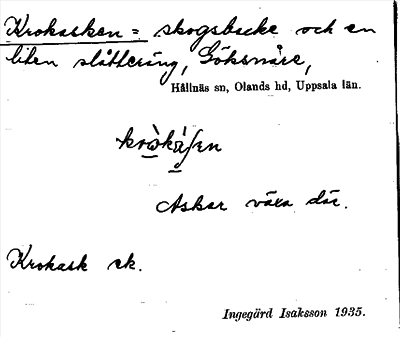 Krokasken = skogsbacke och en
liten slåttering, Göksnåre,
Hållnäs sn, Olands hd, Uppsala län.
Askar växa där.
Krokask ek.
Ingegärd Isaksson 1935.